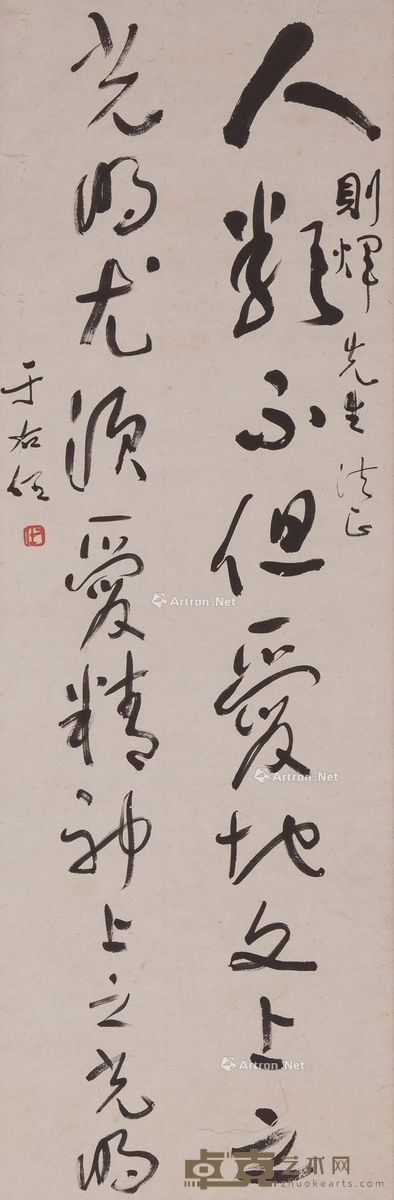 則煇先生法正
人類不但愛地文上之
光明尤須愛精神上之光明
于右任
Artron.Net
Artron.Net
Artron.Net
Artron.Net
卓克艺术网
zhuokearts.com